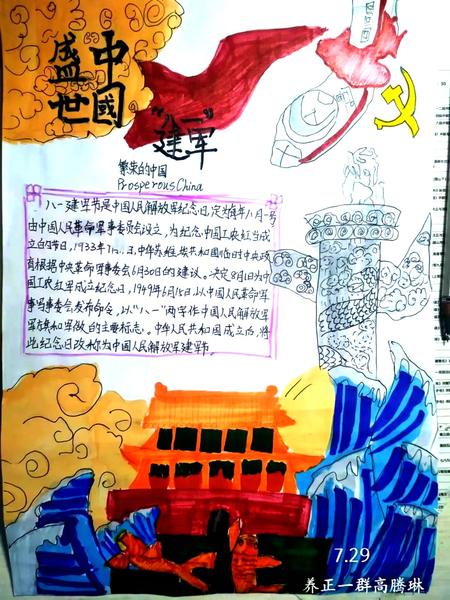 中國
盛世
"八一"
建军
繁荣的中国
Prosperous China
八一建军节是中国人民解放军纪念日,定为每年八月一号
由中国人民革命军事委员会设立,为纪念中国工农红军成
立的节日,1933年7月1日,中华苏维埃共和国临时中央政
府根据中央革命军事委会6月30日的建议。决定8月1日为中
国工农红军成立纪念日,1949年6月15日,以中国人民革命军
事委员会发布命令,以"八一"两字作中国人民解放军
军旗和军徽的主要标志。中华人民共和国成立后,将
此纪念日改称为中国人民解放军建军节。
7.29
养正一群高腾琳